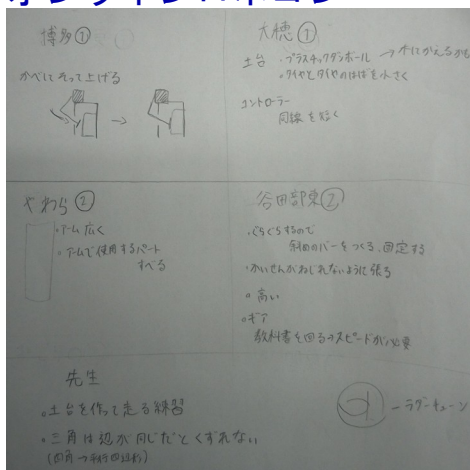 博多①
かべにそって上げる
大穂①
土台 ・プラスチックダンボール → 木にかえるかも
・タイヤとタイヤのはばを小さく
コントローラー
同線を短く
やわら②
・アーム広く
・アームで使用するパート
すべる
谷田部東②
・ぐらぐらするので
斜めのバーをつくる、固定する
・かいせんがねじれないように張る
・高い
・ギア
教科書を回るのスピードが必要
先生
・土台を作って走る練習
・三角は辺が同じだとくずれない
(四角→平行四辺形)